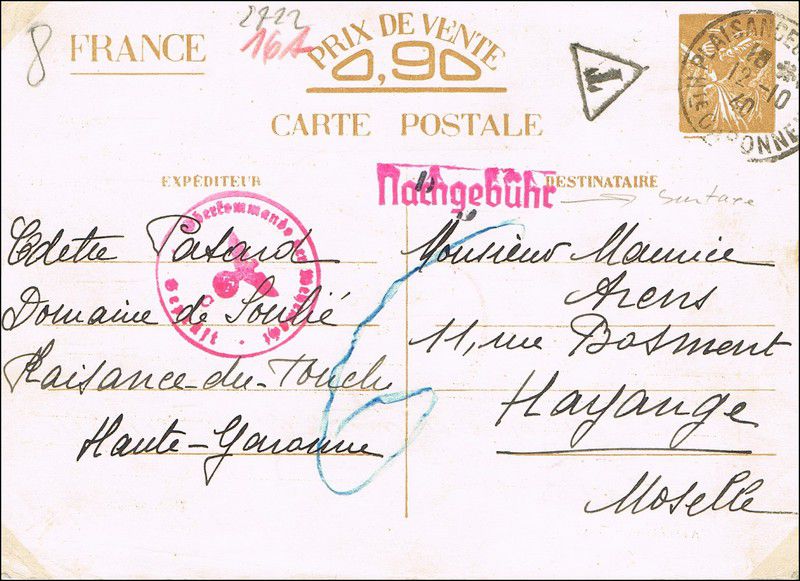 8
FRANCE
2722
16A
PRIX DE VENTE
0,90
CARTE POSTALE
T
PLAISANCE
18
12-10
40
EXPÉDITEUR
DESTINATAIRE
Nachgebühr
surtaxe
Oberkommando der Wehrmacht
Geprüft
Odette Patard
Domaine de Soulié
Plaisance-du-Touch
Haute-Garonne
6
Monsieur Maurice
Arens
11, rue Bosment
Hayange
Moselle